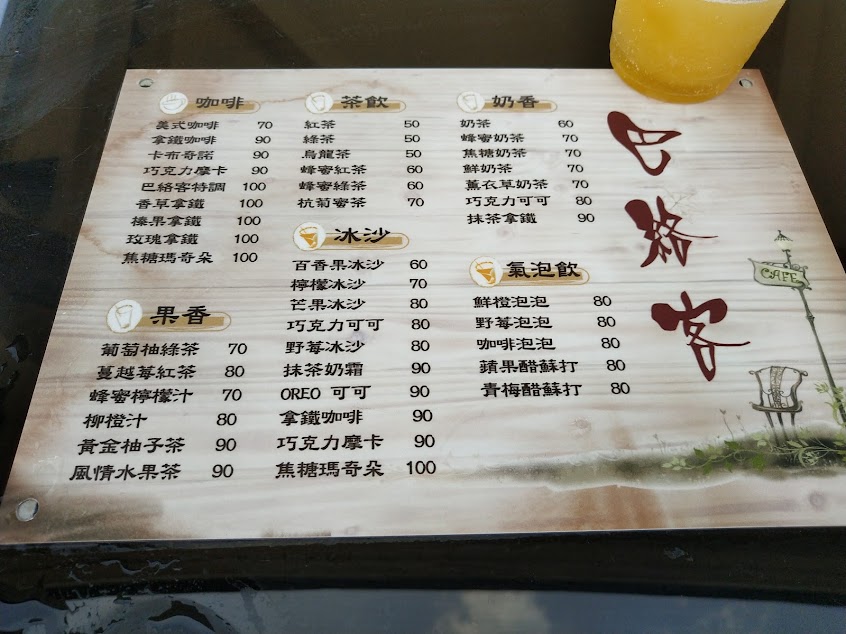 咖啡
美式咖啡 70
拿鐵咖啡 90
卡布奇諾 90
巧克力摩卡 90
巴絡客特調 100
香草拿鐵 100
榛果拿鐵 100
玫瑰拿鐵 100
焦糖瑪奇朵 100
果香
葡萄柚綠茶 70
蔓越莓紅茶 80
蜂蜜檸檬汁 70
柳橙汁 80
黃金柚子茶 90
風情水果茶 90
茶飲
紅茶 50
綠茶 50
烏龍茶 50
蜂蜜紅茶 60
蜂蜜綠茶 60
杭菊蜜茶 70
冰沙
百香果冰沙 60
檸檬冰沙 70
芒果冰沙 80
巧克力可可 80
野莓冰沙 80
抹茶奶霜 90
OREO 可可 90
拿鐵咖啡 90
巧克力摩卡 90
焦糖瑪奇朵 100
奶香
奶茶 60
蜂蜜奶茶 70
焦糖奶茶 70
鮮奶茶 70
薰衣草奶茶 70
巧克力可可 80
抹茶拿鐵 90
氣泡飲
鮮橙泡泡 80
野莓泡泡 80
咖啡泡泡 80
蘋果醋蘇打 80
青梅醋蘇打 80
巴絡客
CAFE